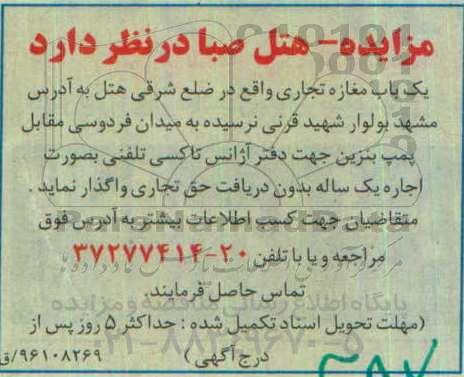 مزایده- هتل صبا در نظر دارد
یک باب مغازه تجاری واقع در ضلع شرقی هتل به آدرس
مشهد بولوار شهید قرنی نرسیده به میدان فردوسی مقابل
پمپ بنزین جهت دفتر آژانس تاکسی تلفنی بصورت
اجاره یک ساله بدون دریافت حق تجاری واگذار نماید .
متقاضیان جهت کسب اطلاعات بیشتر به آدرس فوق
مراجعه و یا با تلفن ۲۰-۳۷۲۷۷۴۱۴
تماس حاصل فرمایند.
(مهلت تحویل اسناد تکمیل شده : حداکثر ۵ روز پس از
درج آگهی ) ۹۶۱۰۸۲۶۹/ق